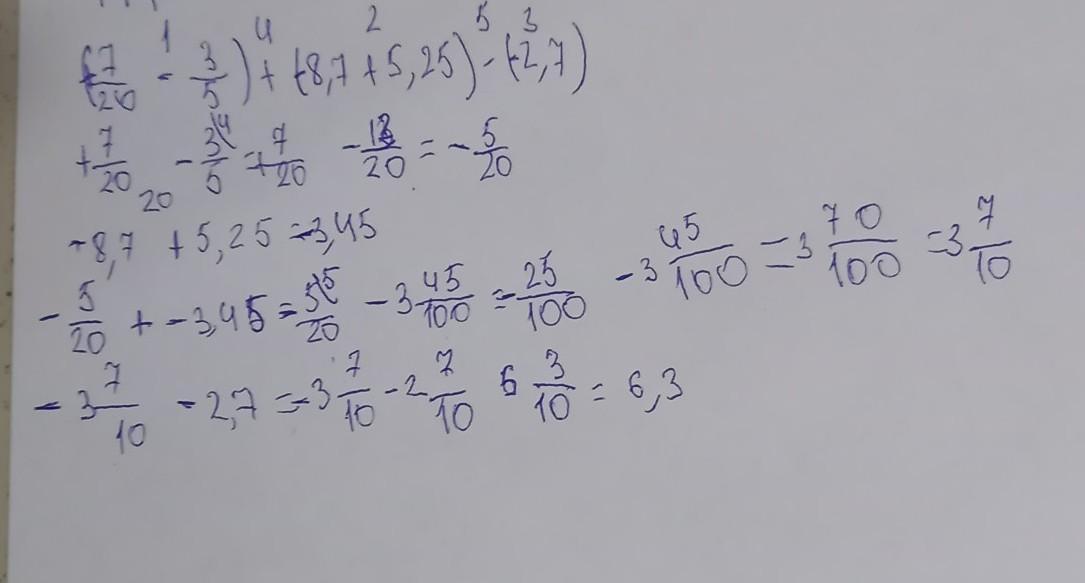 1 4 2 5 3
(7/20 - 3/5) + (-8,7 + 5,25) - (-2,7)
+7/20 - 3\4/5 = +7/20 - 12/20 = -5/20
20
-8,7 + 5,25 = -3,45
-5/20 + -3,45 = 5\5/20 - 3 45/100 = -25/100 - 3 45/100 = 3 70/100 = 3 7/10
-3 7/10 - 2,7 = -3 7/10 - 2 7/10 6 3/10 = 6,3